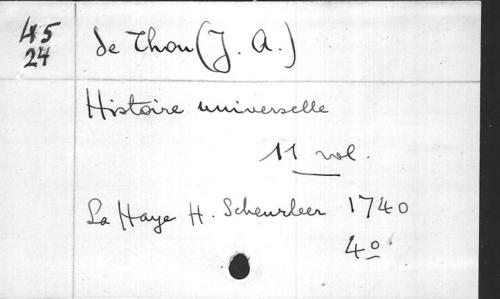 45
24
de Thou (J. A.)
Histoire universelle
11 vol.
La Haye H. Scheurleer 1740
4o